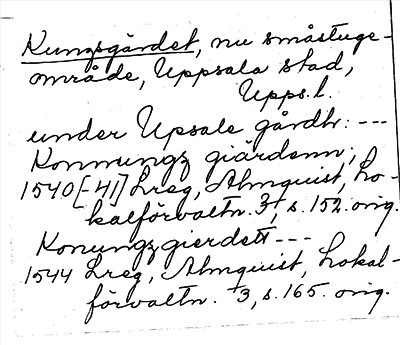 Kungsgärdet, nu småstuge-
område, Uppsala stad,
Upps.l.
under Upsale gårdh: ---
Konnungz giärdenn;
1540[-41] Lreg, Almquist, Lo-
kalförvaltn. 3, s. 152. orig.
Konungzgierdett ---
1544 Lreg, Almquist, Lokal-
förvaltn. 3, s. 165. orig.